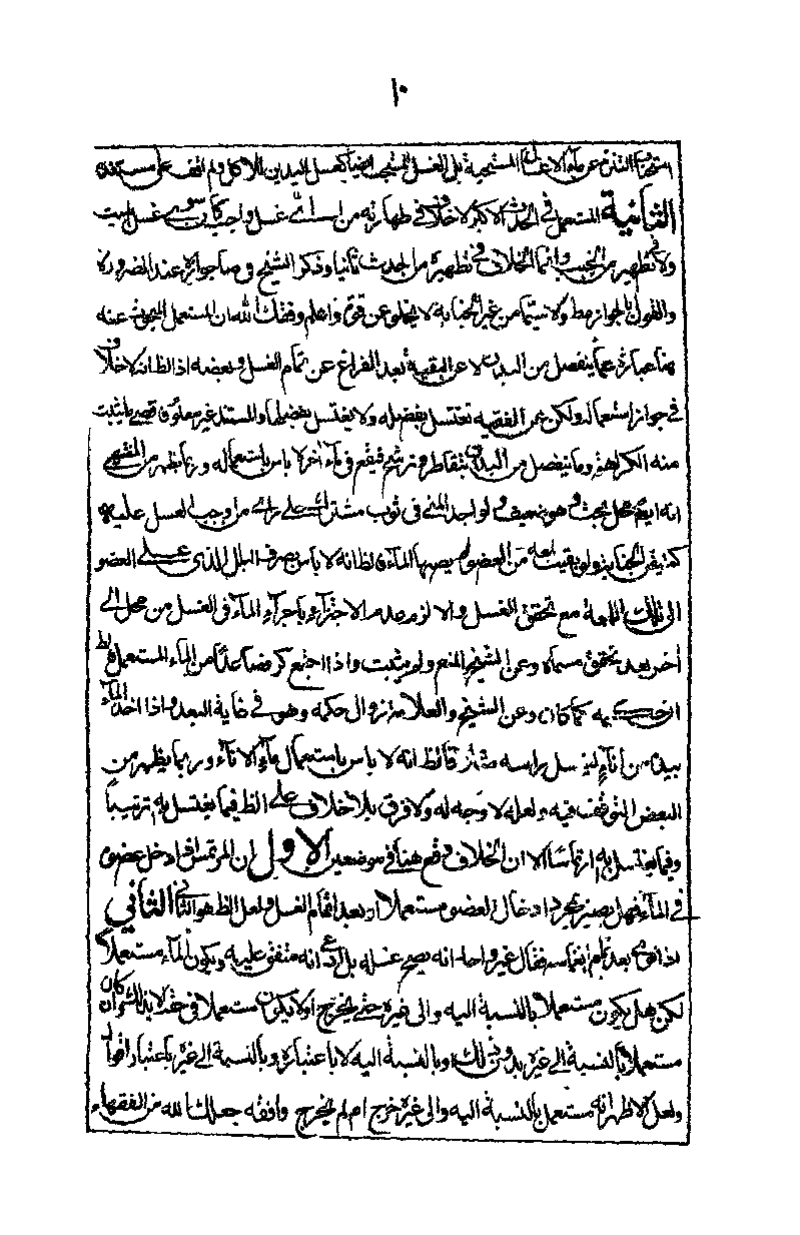 ١٠
استحباب التنزه عن ماء الاغسال المستحبة بل الغسل المستحب ايضا كغسل اليدين للاكل ولم اقف على مستنده
الثانية المستعمل في الحدث الاكبر لا خلاف في طهارته من اى غسل واجب كان سوى غسل الميت
ولا في تطهيره من الخبث وانما الخلاف في تطهيره من الحدث ثانيا وذكر الشيخ وصاحب جوازه عند الضرورة
والقول بالجواز مط ولا سيما من غير الجنابة لا يخلو عن قوة واعلم وفقك الله ان المستعمل المبحوث عنه
هنا عبارة عما ينفصل من البدن لا عن البقية بعد الفراغ عن تمام الغسل وبعضه اذ الظ انه لا خلاف
في جواز استعماله ولكن عن الفقيه تغتسل بفضله ولا يغتسل بفضلها والمستند غير معلوم
منه الكراهة وما ينفصل من البدن بتقاطر وترشح فيقع في ماء اخر لا باس باستعماله وربما يظهر من
انه ايضا محل بحث وهو ضعيف ولواجد المني في ثوب مشترك على راى من وجب الغسل عليه
ولو بقيت لمعة من العضو لم يصبها الماء فالظ انه لا باس بصرف البلل الذى على العضو
الى تلك اللمعة مع تحقق الغسل والا لزم عدم الاجتزاء باجراء الماء في الغسل من محل الى
اخر بعد تحقق مسماه وعن الشيخ المنع ولم يثبت واذا اجتمع كر فصاعدا من الماء المستعمل فالظ
كما كان وعن الشيخ والعلامة زوال حكمه وهو في غاية البعد واذا اخذ الماء
بيده من اناء ليغسل راسه فالظ انه لا باس باستعمال ماء الاناء وربما يظهر من
البعض التوقف فيه ولعله لا وجه له ولا فرق بلا خلاف على الظ فيما يغتسل به ترتيبا
وفيما يغتسل به ارتماسا الا ان الخلاف وقع هنا في موضعين الاول ان المرتمس اذا دخل عضوه
في الماء فهل يصير بمجرد ادخال العضو مستعملا او بعد اتمام الغسل ولعل الظ هو الثاني الثاني
اذا نوى بعد تمام انغماسه فقال غير واحد انه يصح غسله بل ادعى انه متفق عليه ويكون الماء مستعملا
لكن هل يكون مستعملا بالنسبة اليه والى غيره حتى يخرج او لا يكون مستعملا في حقه الا بالخروج وان كان
مستعملا بالنسبة الى غيره بدون ذلك وبالنسبة اليه لا باعتباره وبالنسبة الى غيره باعتباره اقوال
ولعل الاظهر انه مستعمل بالنسبة اليه والى غيره خرج ام لم يخرج وافقه جعلك الله من الفقهاء